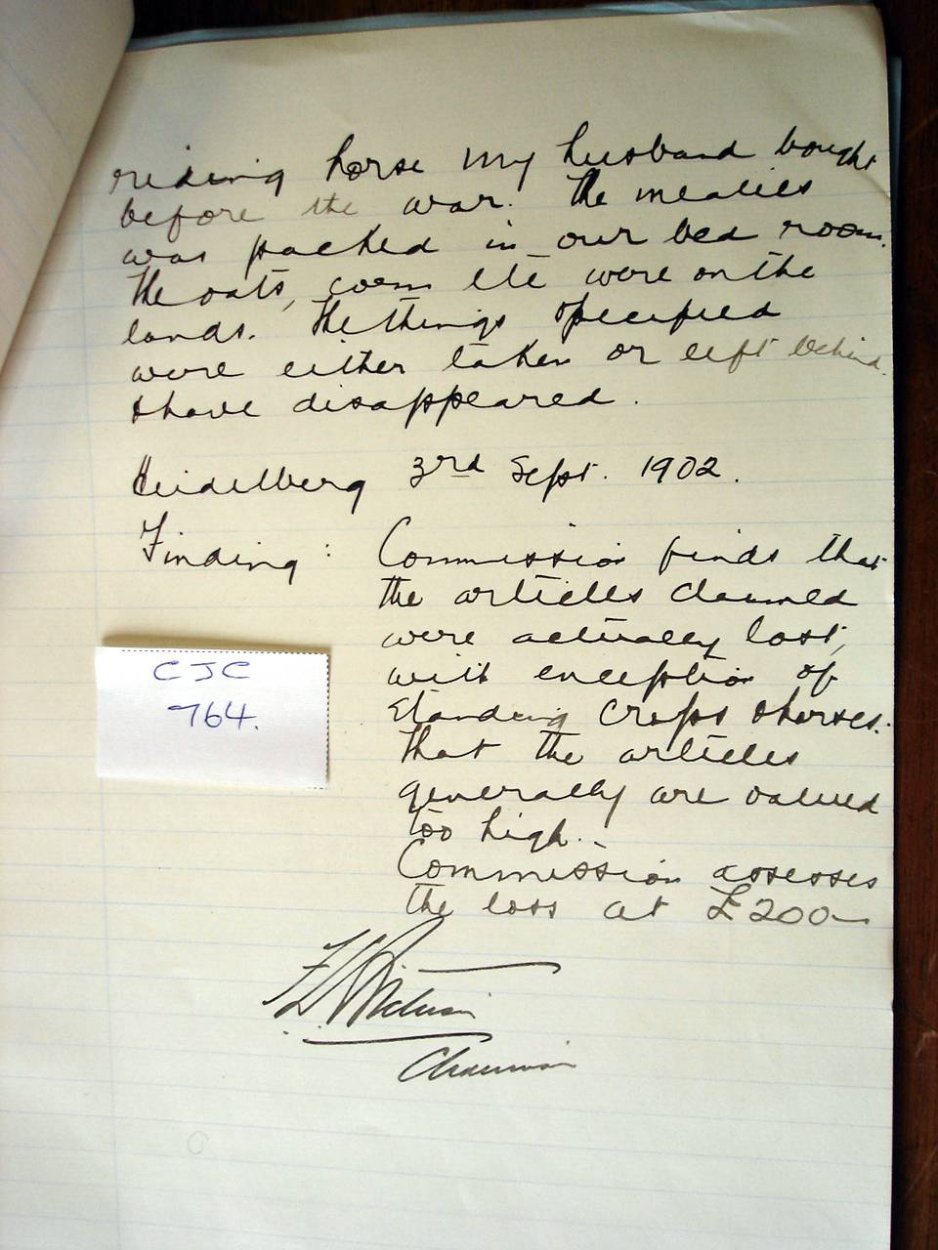 riding horse my husband bought
before the war. The mealies
was packed in our bed room.
The oats, corn etc were on the
lands. The things specified
were either taken or left behind
& have disappeared.
Heidelberg 3rd Sept. 1902.
Finding: Commission finds that
the articles claimed
were actually lost,
with exception of
standing crops & horses.
That the articles
generally are valued
too high.
Commission assesses
the loss at £200
CJC
764.
Chairman